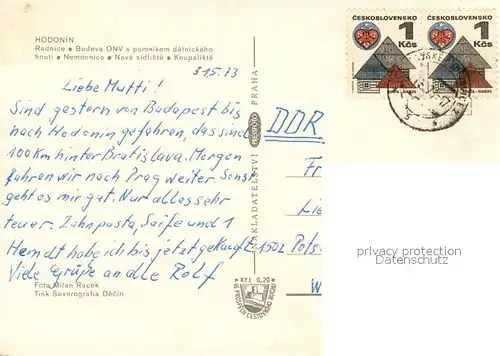 HODONÍN
Radnice • Budova ONV s pomníkem dělnického
hnutí • Nemocnice • Nové sídliště • Koupaliště
31.5.73
Liebe Mutti!
Sind gestern von Budapest bis
nach Hodonin gefahren, das sind
100 km hinter Bratislava. Morgen
fahren wir nach Prag weiter. Sonst
geht es mir gut. Nur alles sehr
teuer. Zahnpasta, Seife und 1
Hemdt habe ich bis jetzt gekauft.
Viele Grüße an alle Rolf
Foto Milan Racek
Tisk Severografia Děčín
NAKLADATELSTVÍ
PRESSFOTO
PRAHA
Kčs 0,20
VE PROSPĚCH CESTOVNÍHO RUCHU
ČESKOSLOVENSKO
1
Kčs
ČESKOSLOVENSKO
1
Kčs
DDR
Fr
Lie
1502 Pots
W
privacy protection
Datenschutz